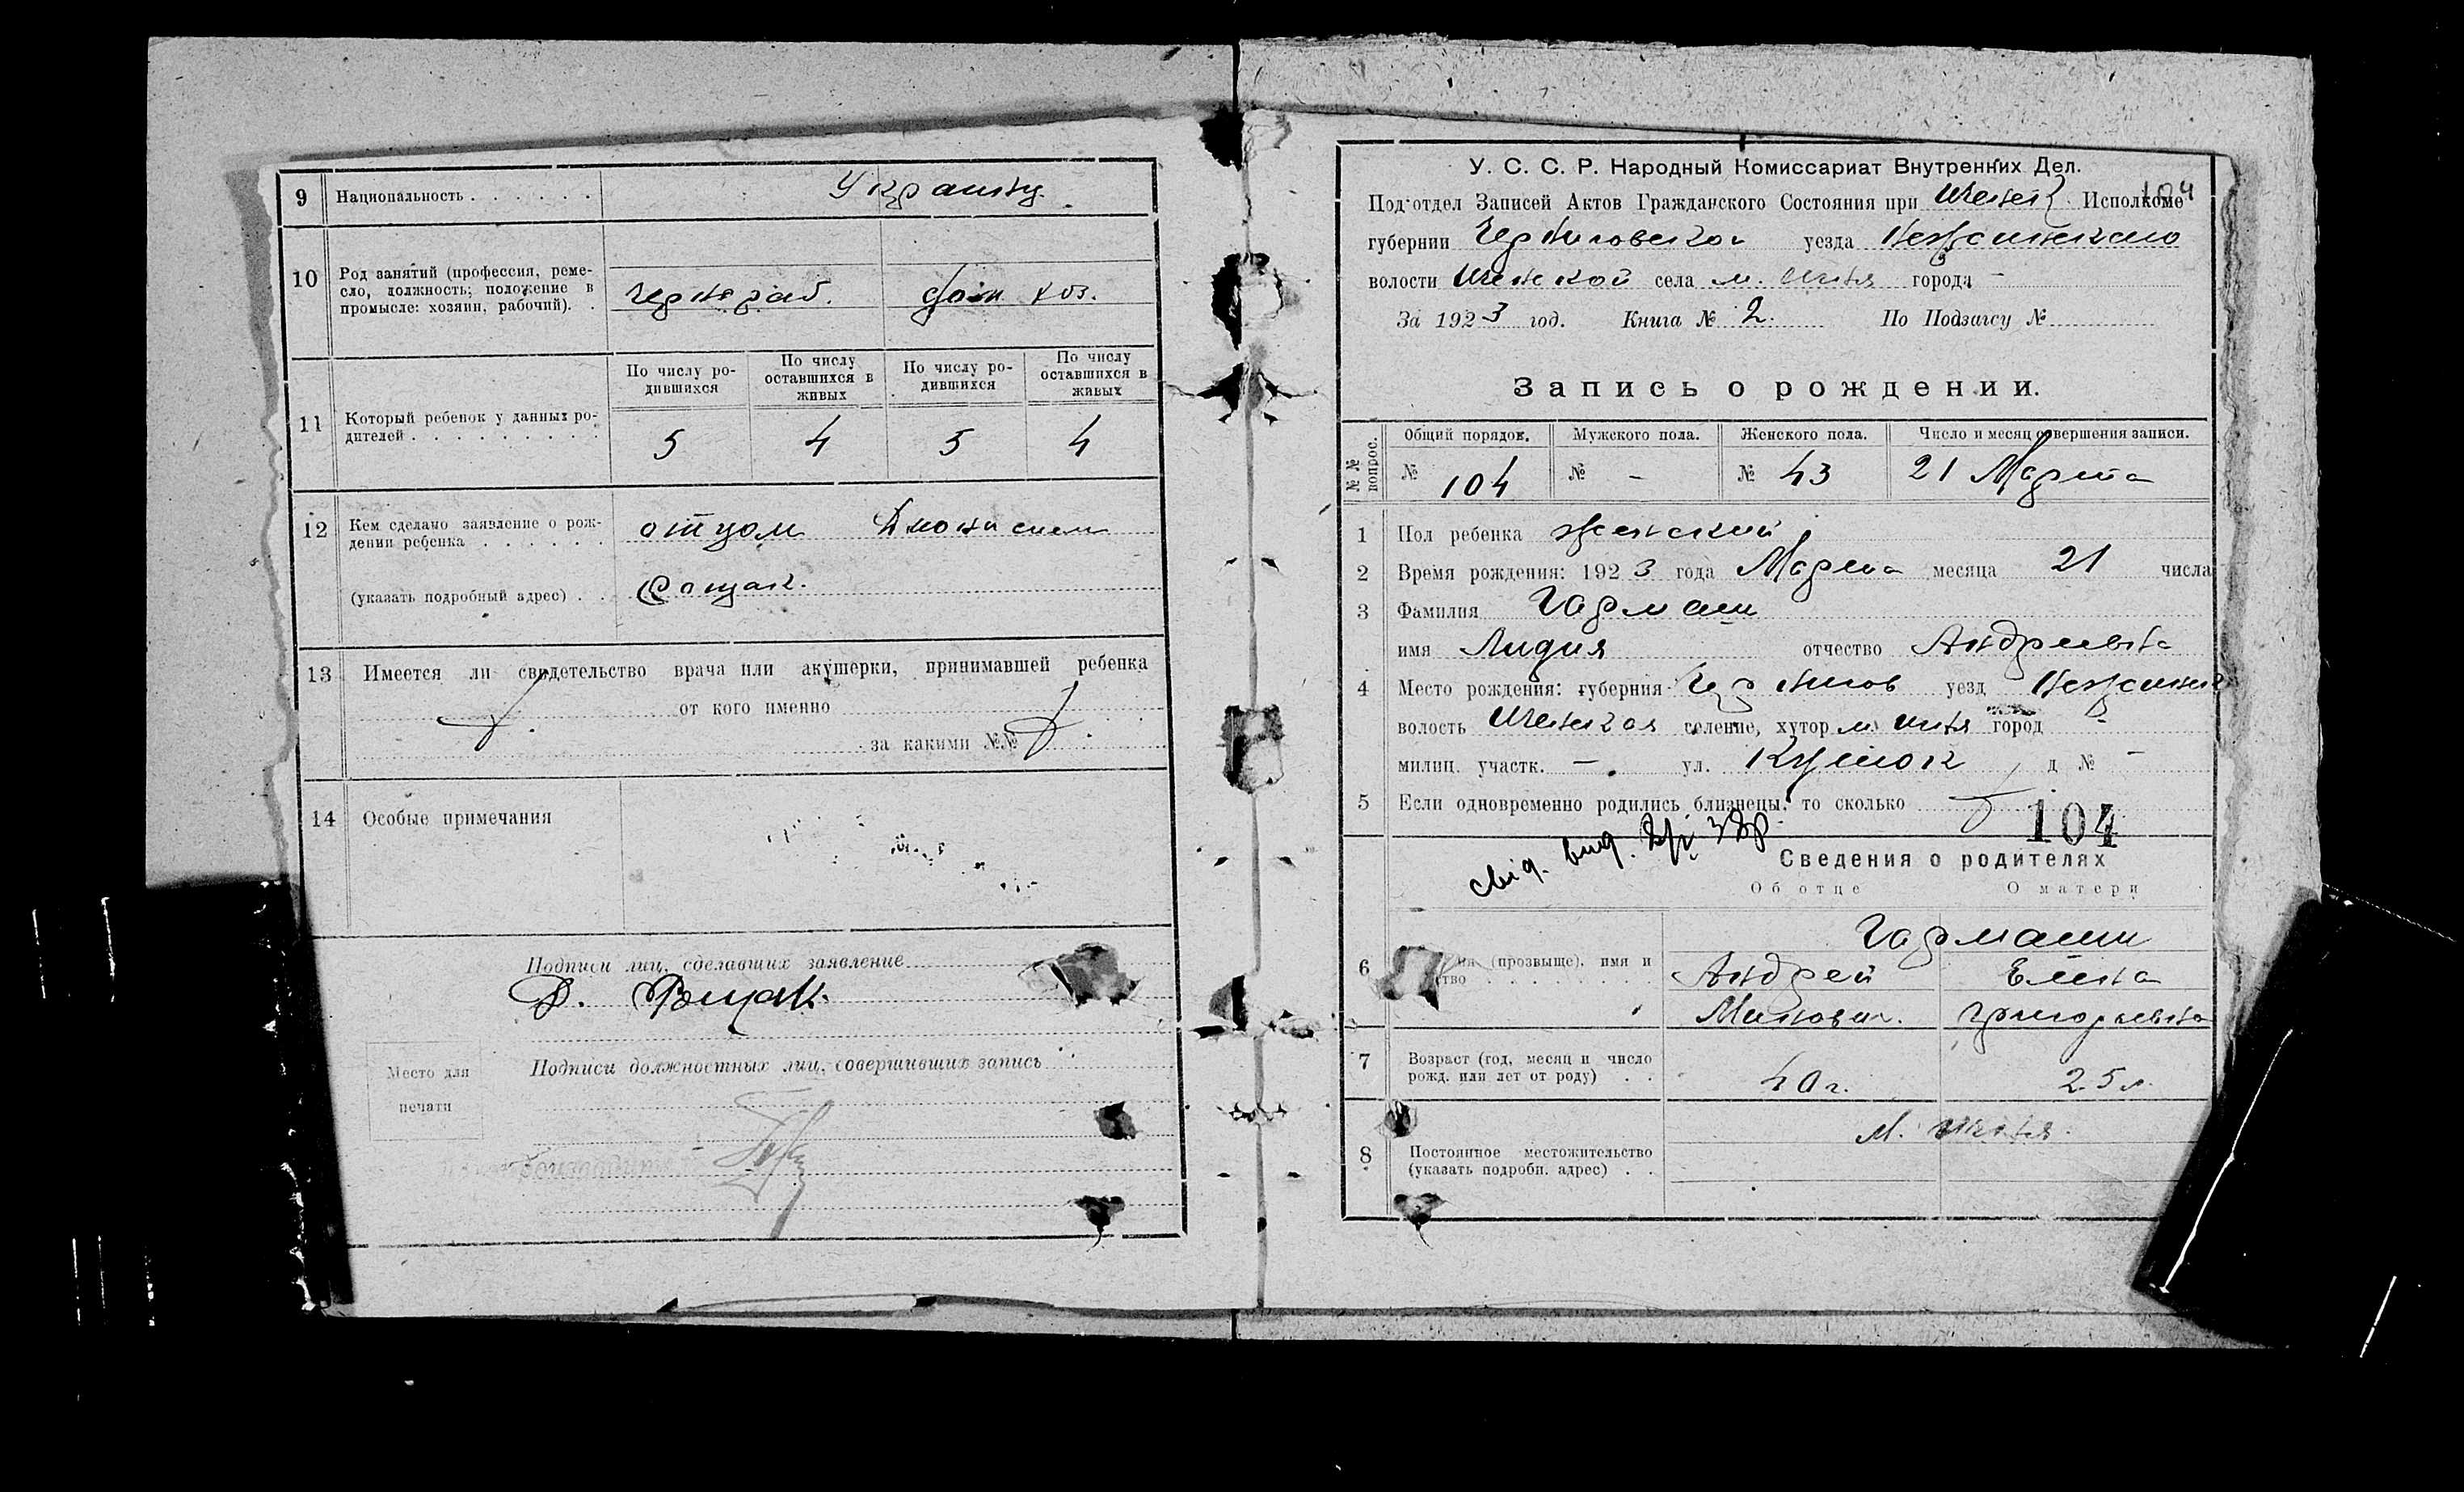 9 Национальность . . . . . . Украинцы.
10 Род занятий (профессия, реме-
сло, должность; положение в
промысле: хозяин, рабочий). .
чернораб. дом хоз.
11 Который ребенок у данных ро-
дителей . . . . . . . . .
По числу ро-
дившихся
По числу
оставшихся в
живых
По числу ро-
дившихся
По числу
оставшихся в
живых
5 4 5 4
12 Кем сделано заявление о рож-
дении ребенка . . . . . . отцом
(указать подробный адрес) . .
13 Имеется ли свидетельство врача или акушерки, принимавшей ребенка
от кого именно
за какими №№
14 Особые примечания
Подписи лиц, сделавших заявление
Подписи должностных лиц, совершивших запись
Место для
печати
У. С. С. Р. Народный Комиссариат Внутренних Дел.
104
Под‘отдел Записей Актов Гражданского Состояния при Исполкоме
губернии Черниговской уезда Нежинского
волости Иченской села м. Ичня города -
За 1923 год. Книга № 2. По Подзагсу №
Запись о рождении.
№№ вопрос.
Общий порядок. Мужского пола. Женского пола. Число и месяц совершения записи.
№ 104 № - № 43 21 Марта
1 Пол ребенка женский
2 Время рождения: 1923 года Марта месяца 21 числа
3 Фамилия Гармаш
имя Лидия отчество Андреевна
4 Место рождения: губерния Чернигов уезд Нежинск
волость Иченская селение, хутор м. Ичня город -
милиц. участк. - ул. Куток д № -
5 Если одновременно родились близнецы, то сколько
104
Сведения о родителях
Об отце О матери
Гармаш
6 (прозвыще), имя и
тво . . . . . . . . .
Андрей Елена
Григорьевна
7 Возраст (год, месяц и число
рожд. или лет от роду) . .
40 г. 25 л.
8 Постоянное местожительство
(указать подробн. адрес) . .
м. Ичня